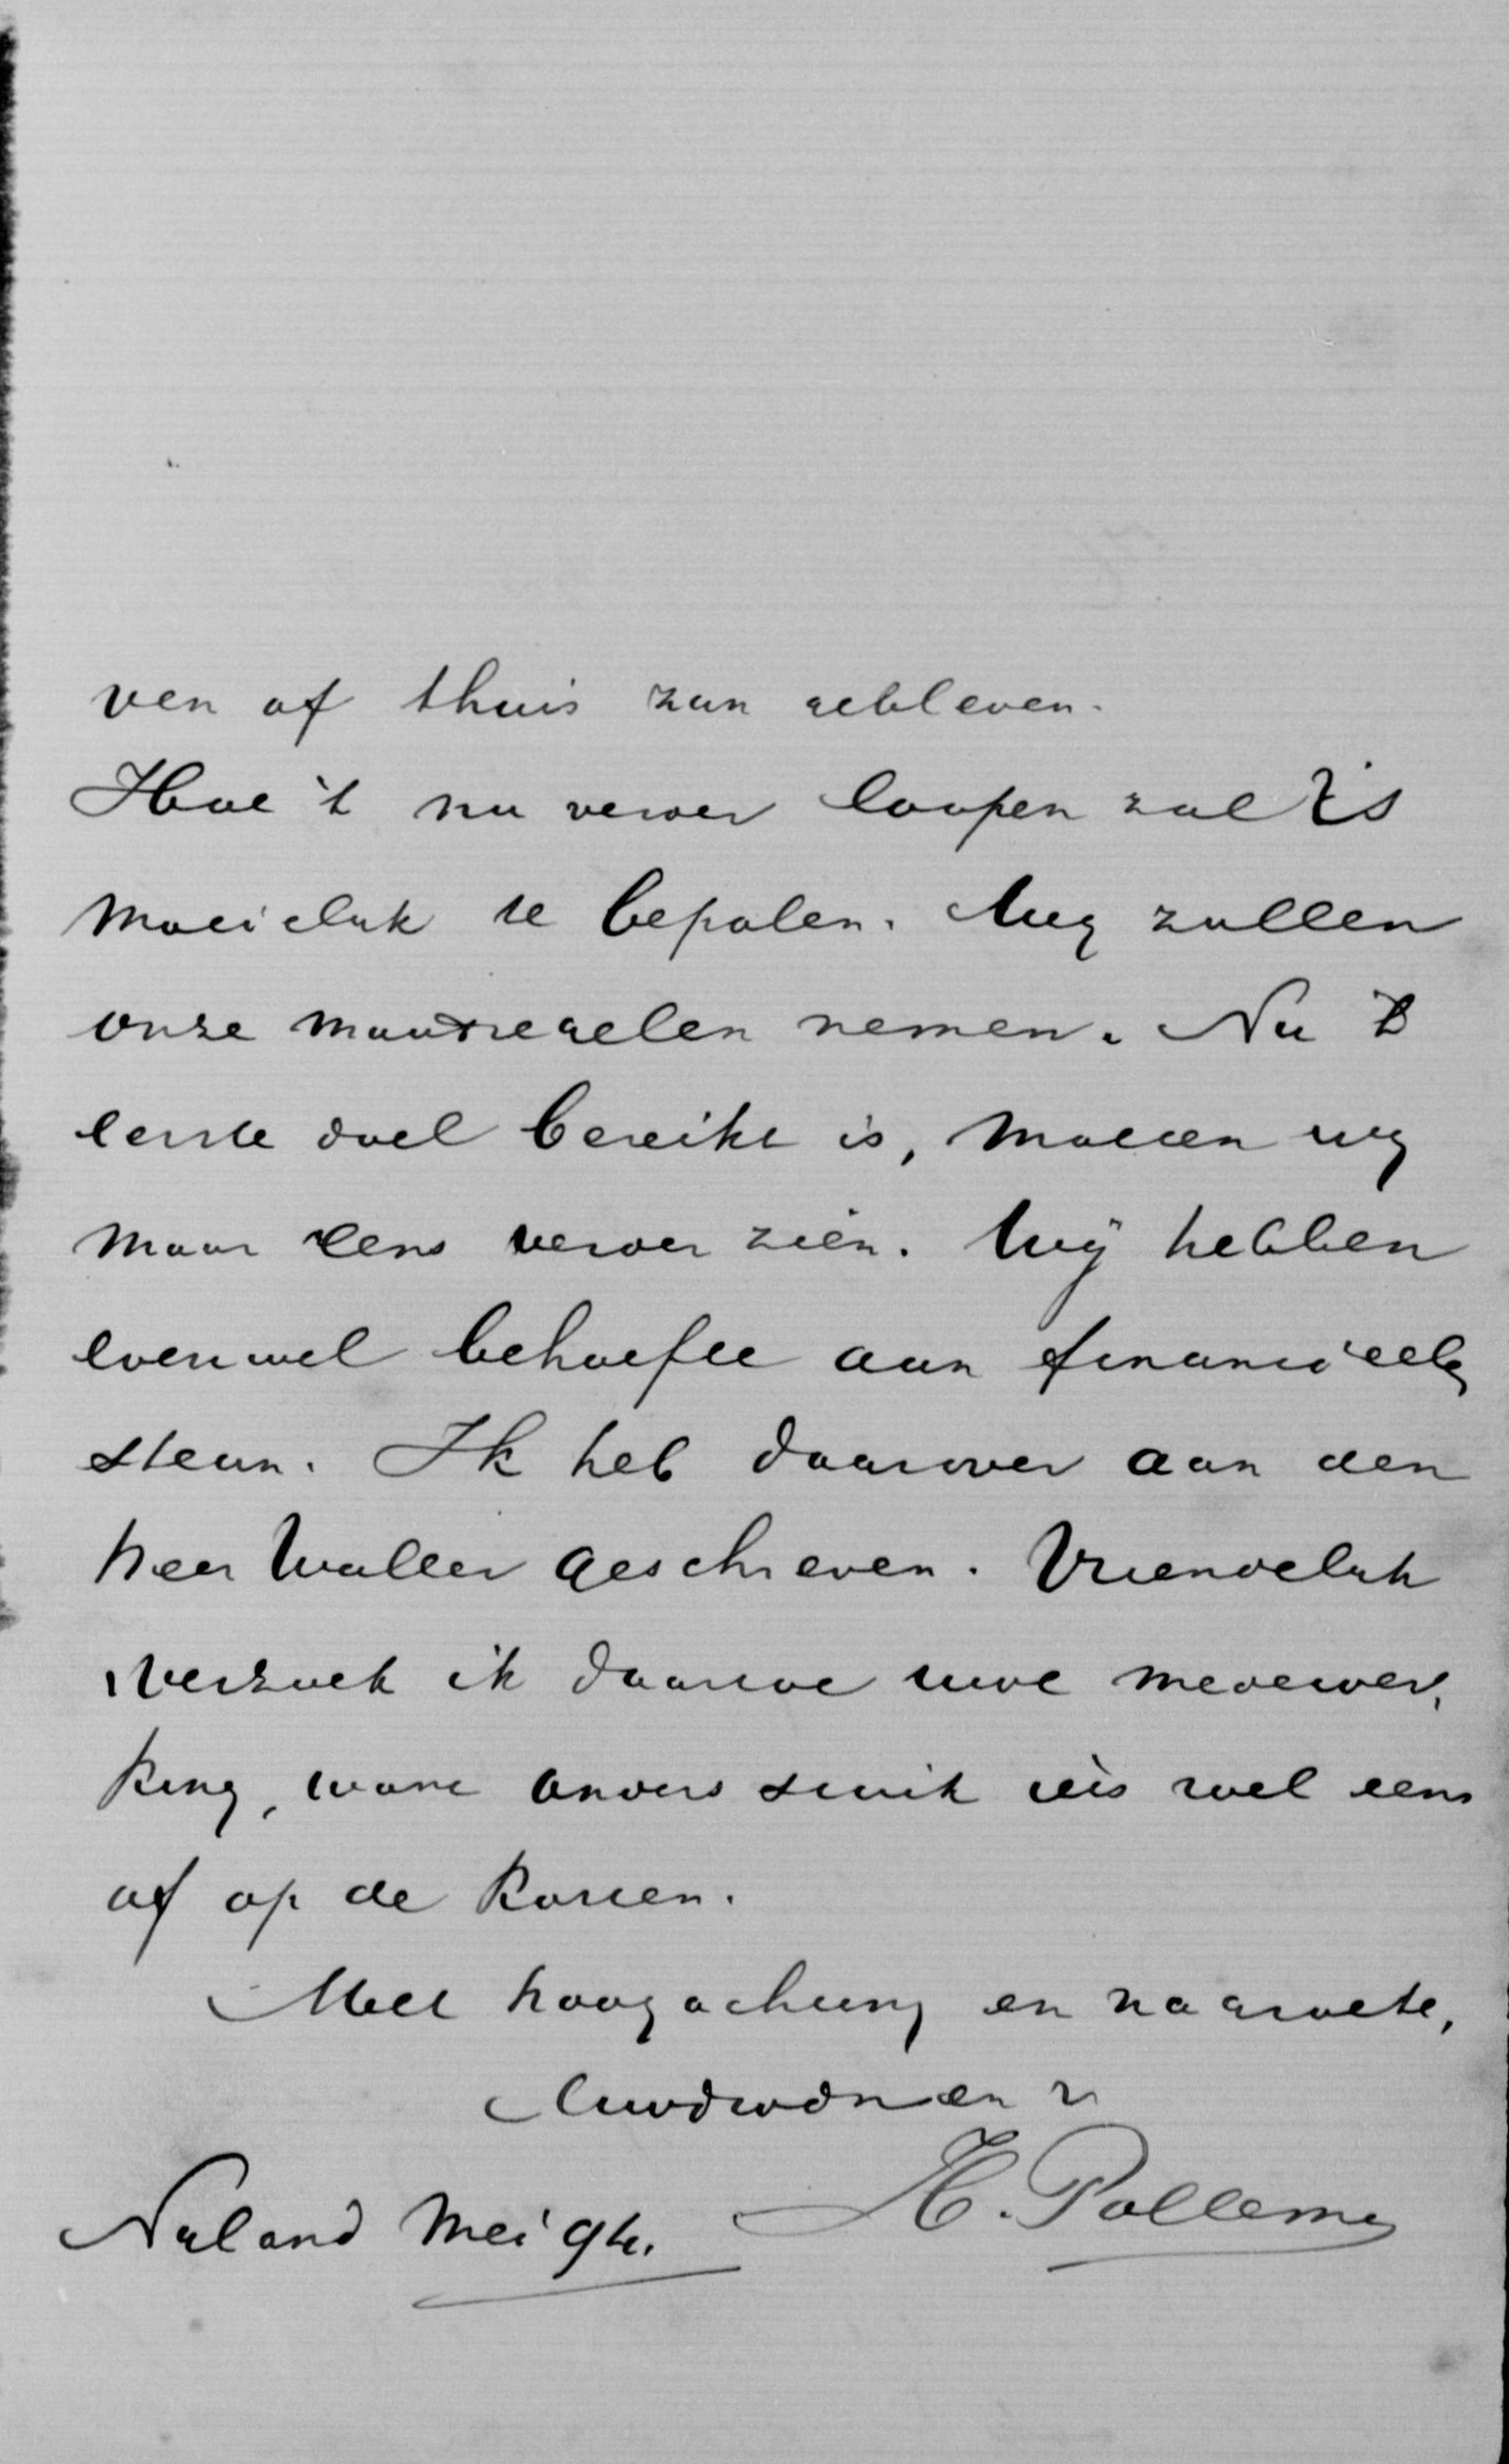 ven of thuis zijn gebleven.
Hoe 't nu verder loopen zal is
moeielijk te bepalen. Wij zullen
onze maatregelen nemen. Nu 't
eerste doel bereikt is, moeten wij
maar eens verder zien. Wij hebben
evenwel behoefte aan financieele
steun. Ik heb daarover aan den
heer Waller geschreven. Vriendelijk
verzoek ik daartoe uwe medewer,
king, want anders stuit iets wel eens
af op de kosten.
Met hoogachting en na groete,
Uwdwdnaar
H. Pollema
Nijland Mei 94.